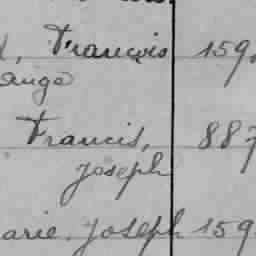 François 159
Francis, 887
Joseph
Joseph 159